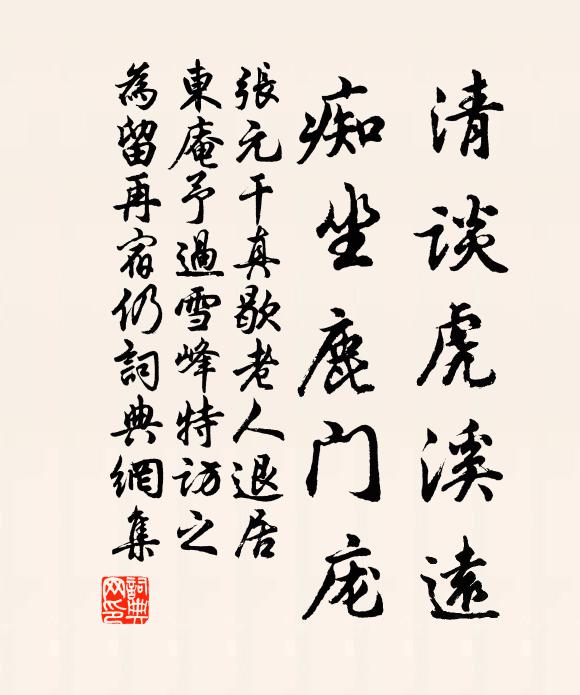 清談虎溪遠
痴坐鹿門庞
張元干真歇老人退居
東庵予過雪峰特訪之
為留再宿仍詞典網集
詞典
网印